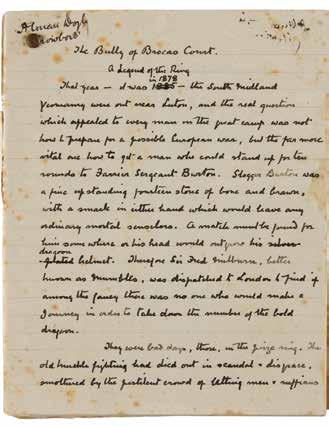 A Conan Doyle
Crowborough
The Bully of Brocas Court.
A Legend of the Ring
in 1878
That year – it was 1885 – the South Midland
Yeomanry were out near Luton, and the real question
which appealed to every man in the great camp was not
how to prepare for a possible European war, but the far more
vital one how to get a man who could stand up for ten
rounds to Farrier Sergeant Burton. Slogger Burton was
a fine upstanding fourteen stone of bone and brawn,
with a smack in either hand which would leave any
ordinary mortal senseless. A match must be found for
him somewhere or his head would outgrow his silver
dragoon
-plated helmet. Therefore Sir Fred Milburn, better
known as Mumbles, was dispatched to London to find if
among the fancy there was no one who would make a
journey in order to take down the number of the bold
dragoon.
They were bad days, those, in the prize ring. The
old knuckle fighting had died out in scandal & disgrace,
smothered by the pestilent crowd of betting men & ruffians